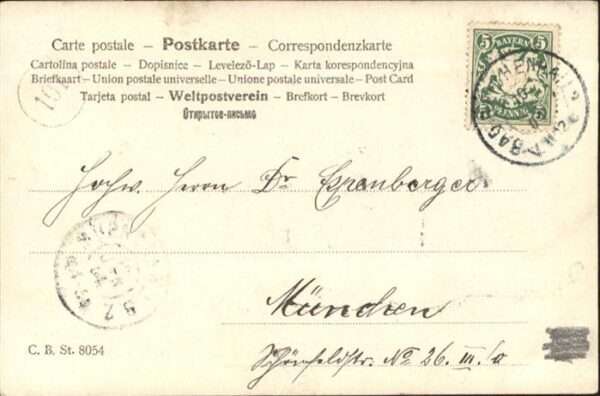 Carte postale – Postkarte – Correspondenzkarte
Cartolina postale – Dopisnice – Levelező-Lap – Karta korespondencyjna
Briefkaart – Union postale universelle – Unione postale universale – Post Card
Tarjeta postal – Weltpostverein – Brefkort – Brevkort
Открытое-письмо
5 BAYERN 5
PFENNIG
101
Hochw. Herrn Dr Espenberger
München
Schönfeldstr. No 26. III./a
C. B. St. 8054